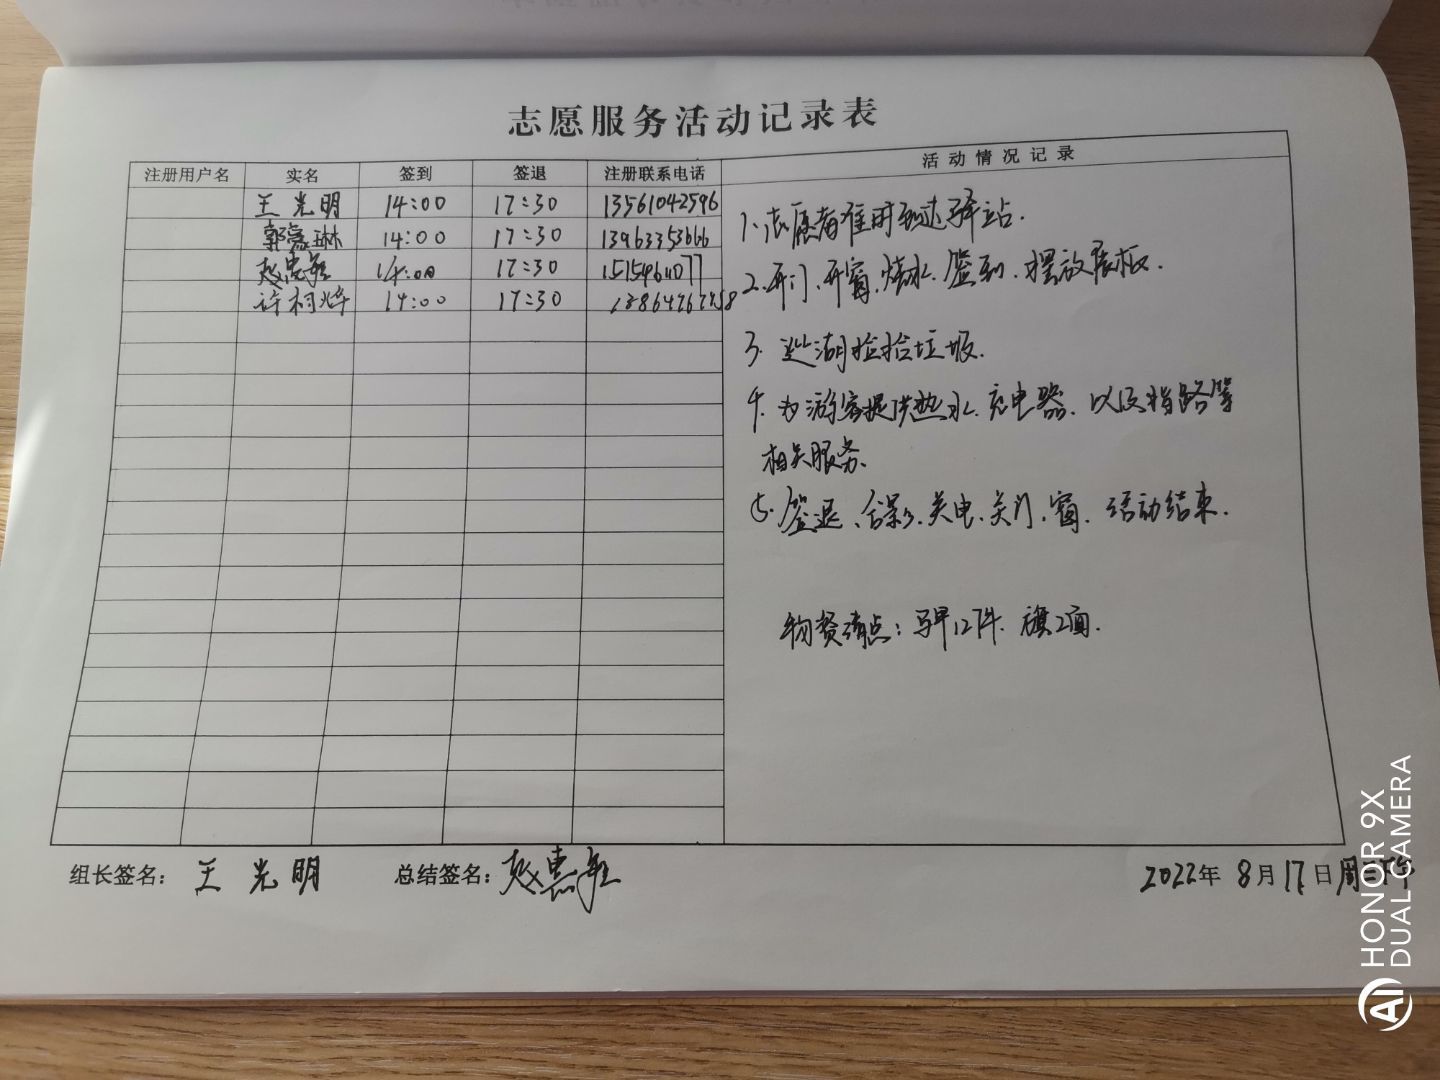 志愿服务活动记录表
注册用户名 实名 签到 签退 注册联系电话 活动情况记录
王光明 14:00 17:30 13561042596
14:00 17:30 13963353666
赵惠 14:00 17:30
许柯烨 14:00 17:30
1.志愿者准时到达驿站.
2.开门、开窗、烧水、签到、摆放展板.
3.巡湖捡拾垃圾.
4.为游客提供热水、充电器、以及指路等
相关服务.
5.签退、合影、关电、关门、窗.活动结束.
物资清点:马甲12件.旗2面.
组长签名: 王光明 总结签名: 赵惠
2022年8月17日周三下午
HONOR 9X
DUAL CAMERA
AI